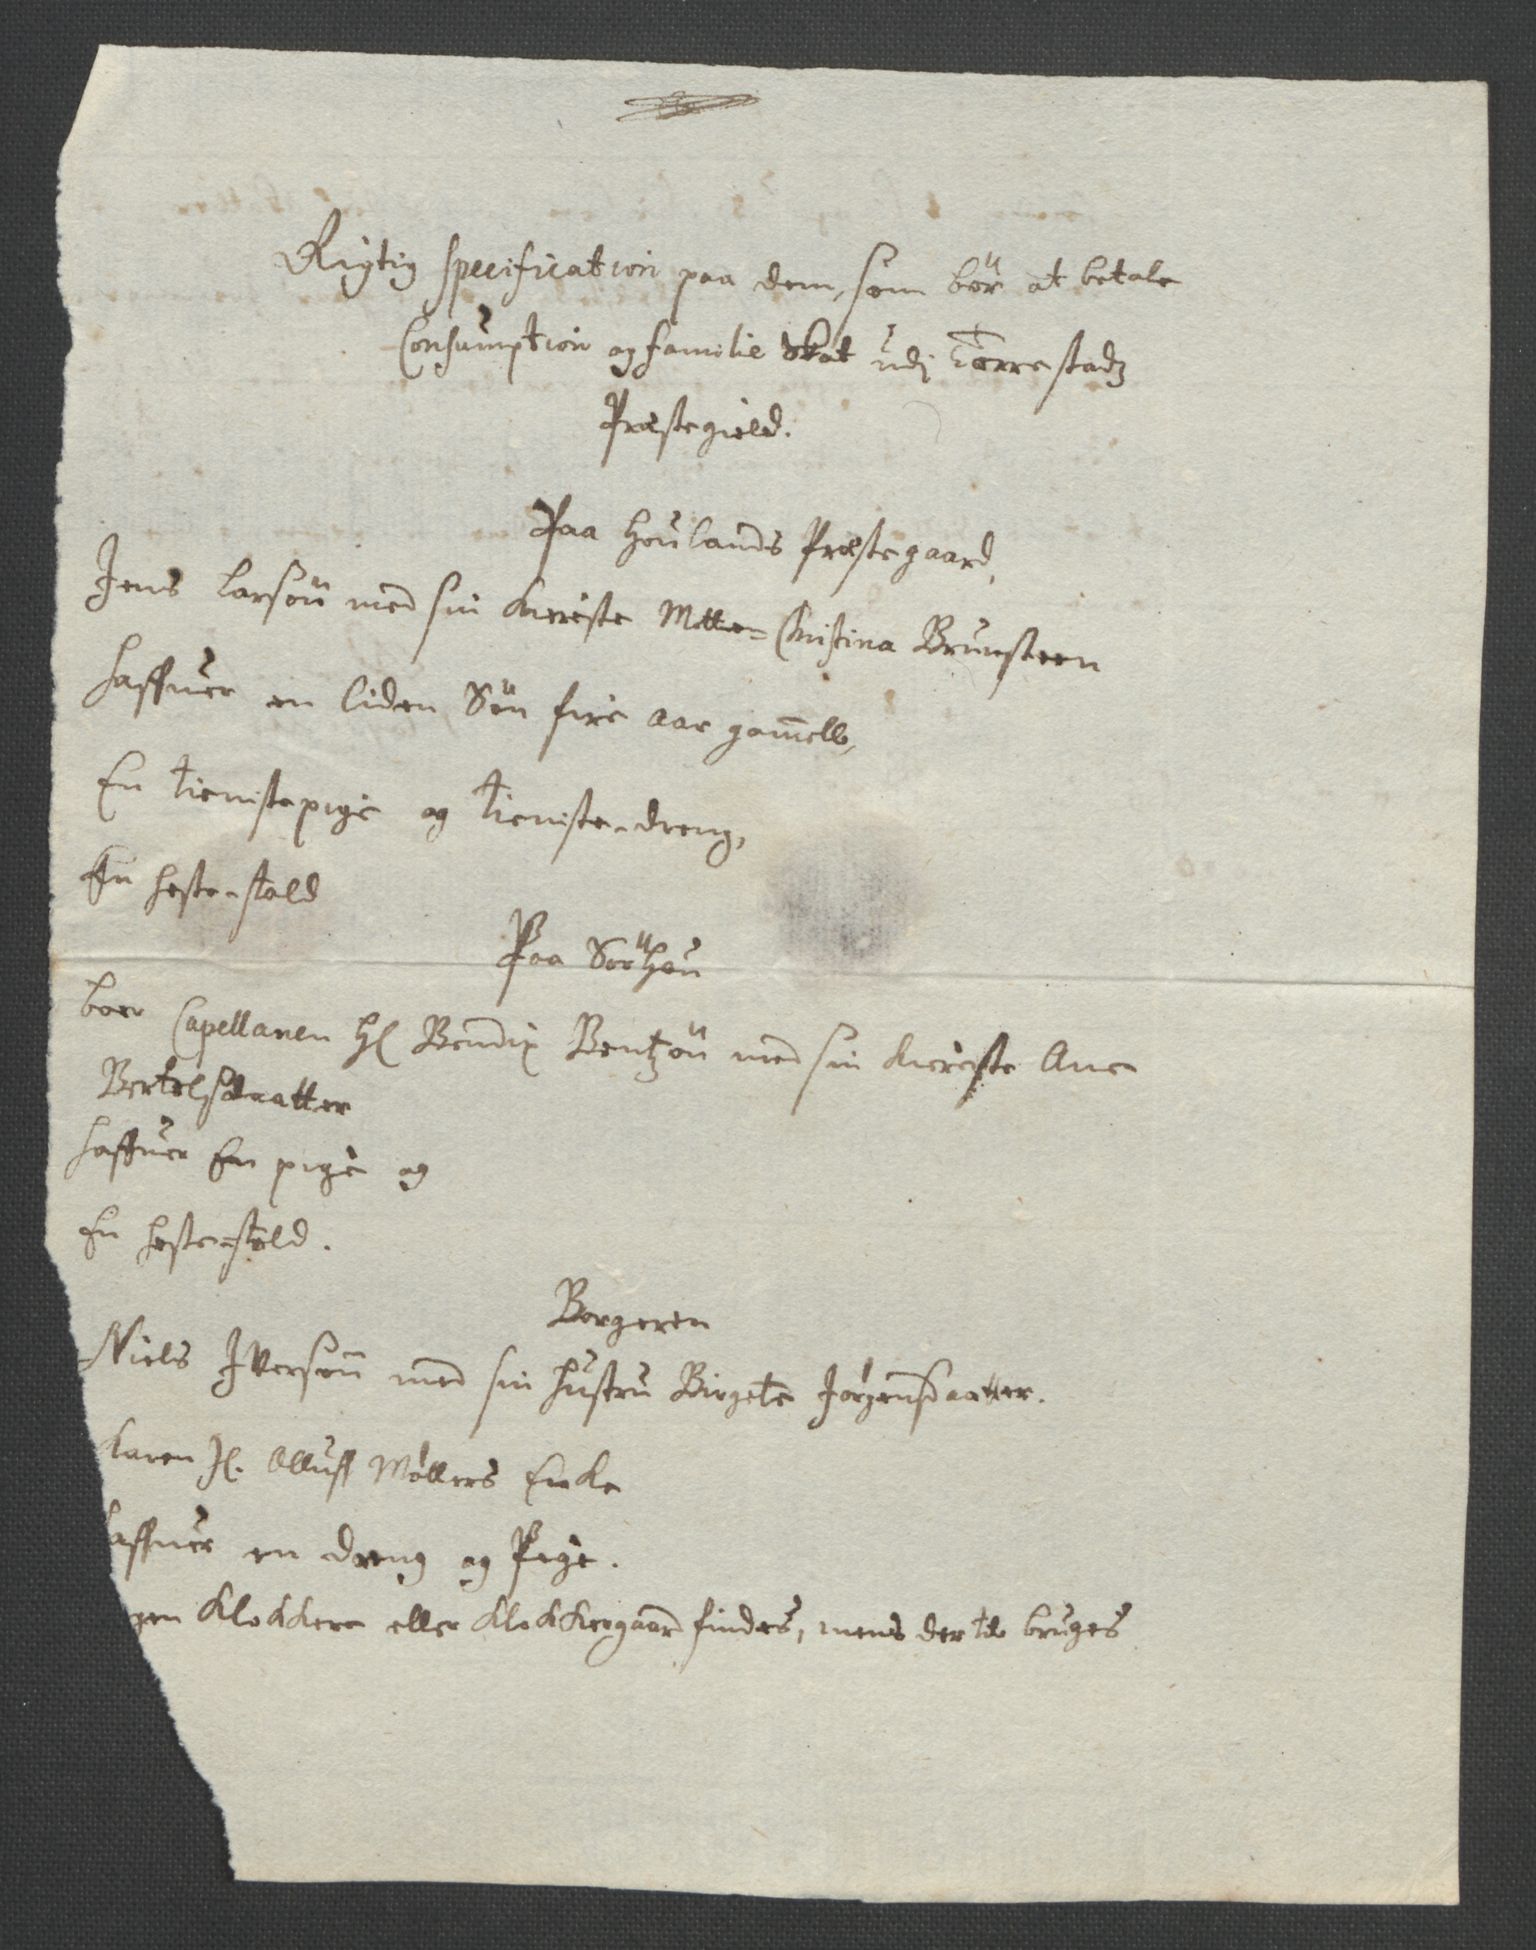 Rigtig specification paa dem, som bör at betale
Consumption og familie Skat udj Torrestadz
Præstegield.
Paa Houlands Præstegaard,
Jens Larsøn med sin kiereste Mette-Christina Brunsteen
haffuer en liden Søn fire aar gam̄ell,
En tienistepige og tieniste-dreng,
En heste-stald
Paa Sörhou
boer Capellanen Hl Bendix Bentzön med sin kiereste Ane
Bertelsdaatter
haffuer En pige og
En heste-stald.
Borgeren
Niels Iversøn med sin hustru Birgete Jörgensdaatter.
Karen Hl. Olluff Möllers Encke
haffuer en dreng og Pige.
gen Klokkere eller Klokkergaard findes, mens der til bruges